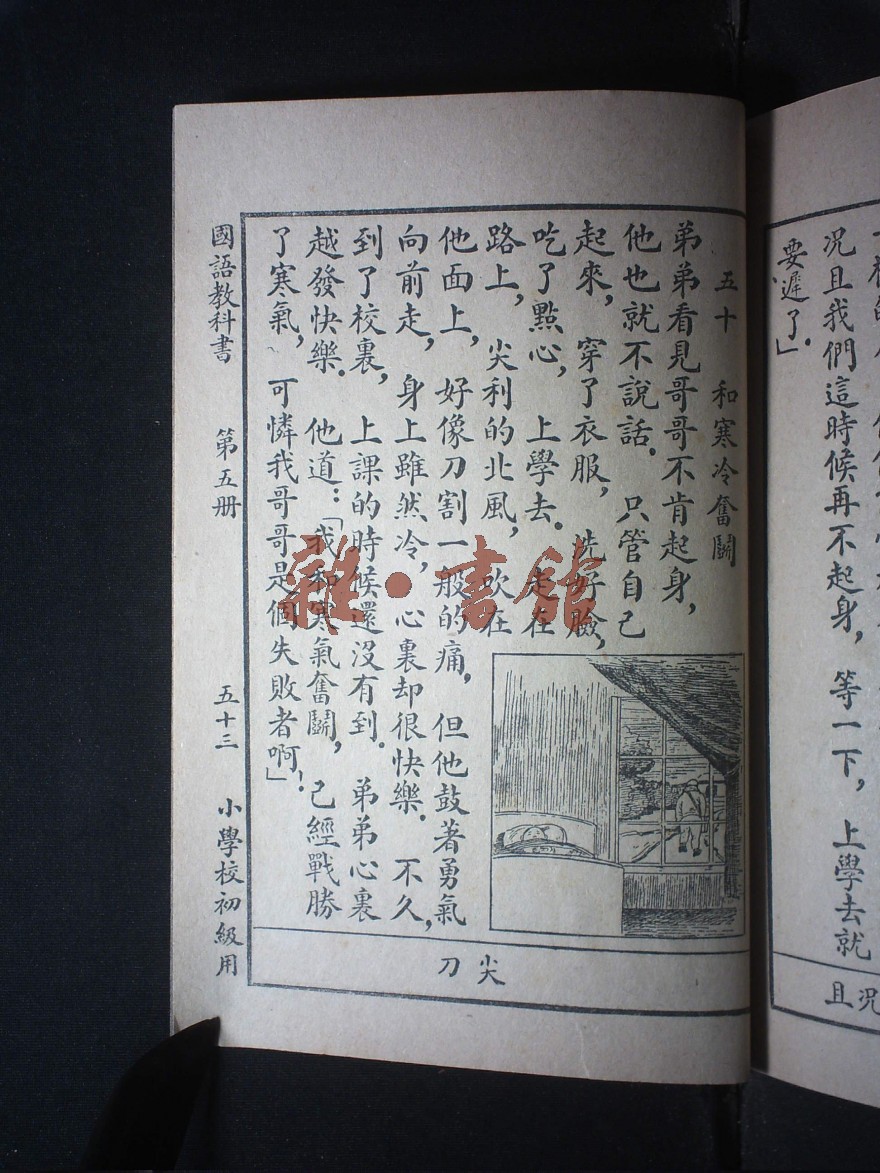 況且我們這時候再不起身，等一下，上學去就
要遲了。」
況且
五十　和寒冷奮鬭
弟弟看見哥哥不肯起身，
他也就不說話。只管自己
起來，穿了衣服，洗好臉，
吃了點心，上學去。走在
路上，尖利的北風，吹在
他面上，好像刀割一般的痛，但他鼓著勇氣，
向前走，身上雖然冷，心裏却很快樂。不久，
到了校裏，上課的時候還沒有到。弟弟心裏
越發快樂。他道：「我和寒氣奮鬭，已經戰勝
了寒氣，可憐我哥哥是個失敗者啊！」
尖
刀
國語教科書　第五册　五十三　小學校初級用
雜·書館